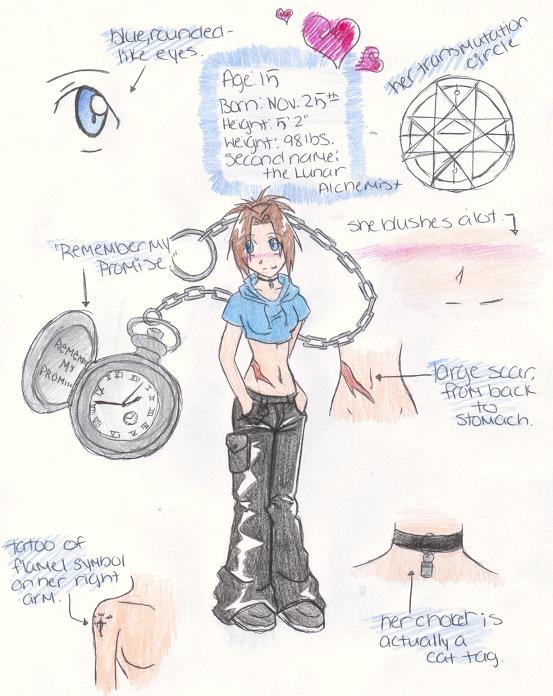 blue, rounded-
like eyes.
Age: 15
Born: Nov. 25th
Height: 5' 2"
Weight: 98 lbs.
Second name:
the Lunar
Alchemist
her transmutation
circle
she blushes alot.
"Remember My
Promise."
REMEMBER
MY
PROMI...
large scar,
from back
to
stomach.
tatoo of
flamel symbol
on her right
arm.
her choker is
actually a
cat tag.